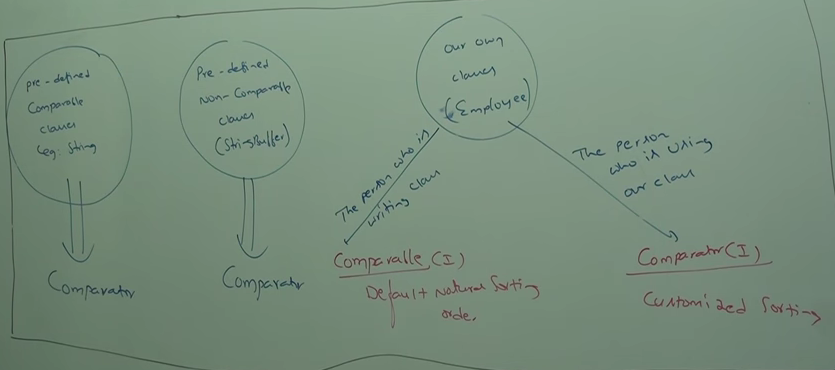 pre-defined
Comparable
classes
(eg: String
Comparator
Pre-defined
Non-Comparable
classes
(StringBuffer)
Comparator
our own
classes
(Employee)
The person who is
writing class
Comparable (I)
Default Natural Sorting
order
The person
who is using
our class
Comparator (I)
Customized Sorting